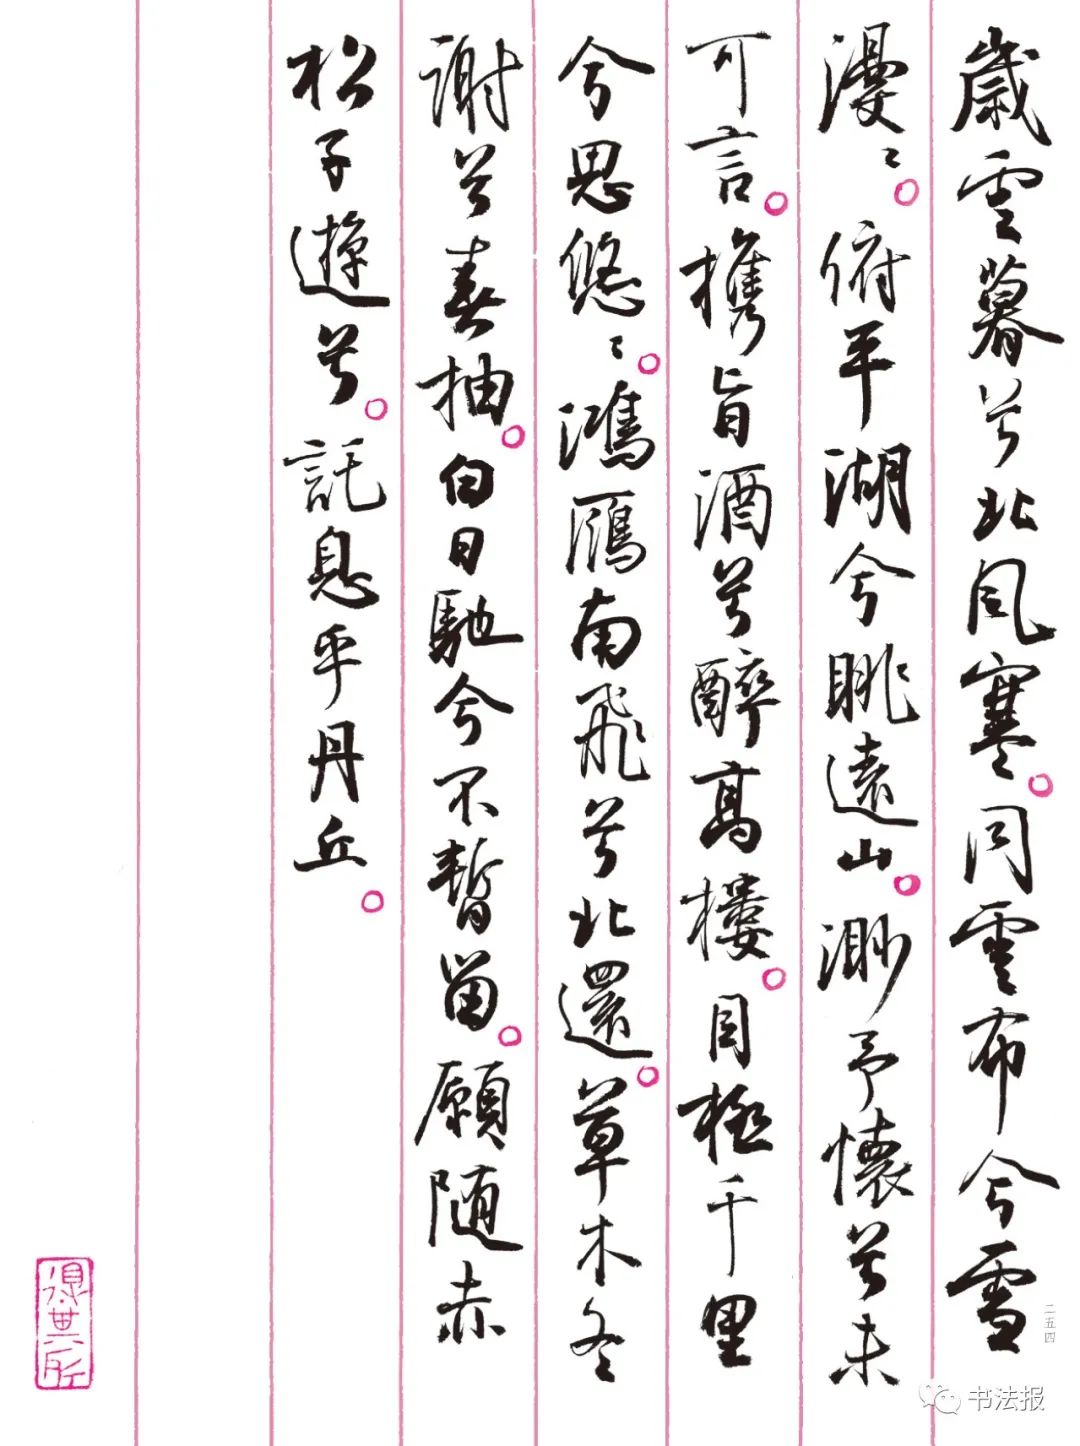 歲云暮兮北風寒。同雲布兮雪
漫々。俯平湖兮眺遠山。渺予懷兮未
可言。携旨酒兮醉高樓。目極千里
兮思悠々。鴻鴈南飛兮北還。草木冬
謝兮春抽。白日馳兮不暫留。願随赤
松子遊兮。託息乎丹丘。
二五四
得其所
书法报